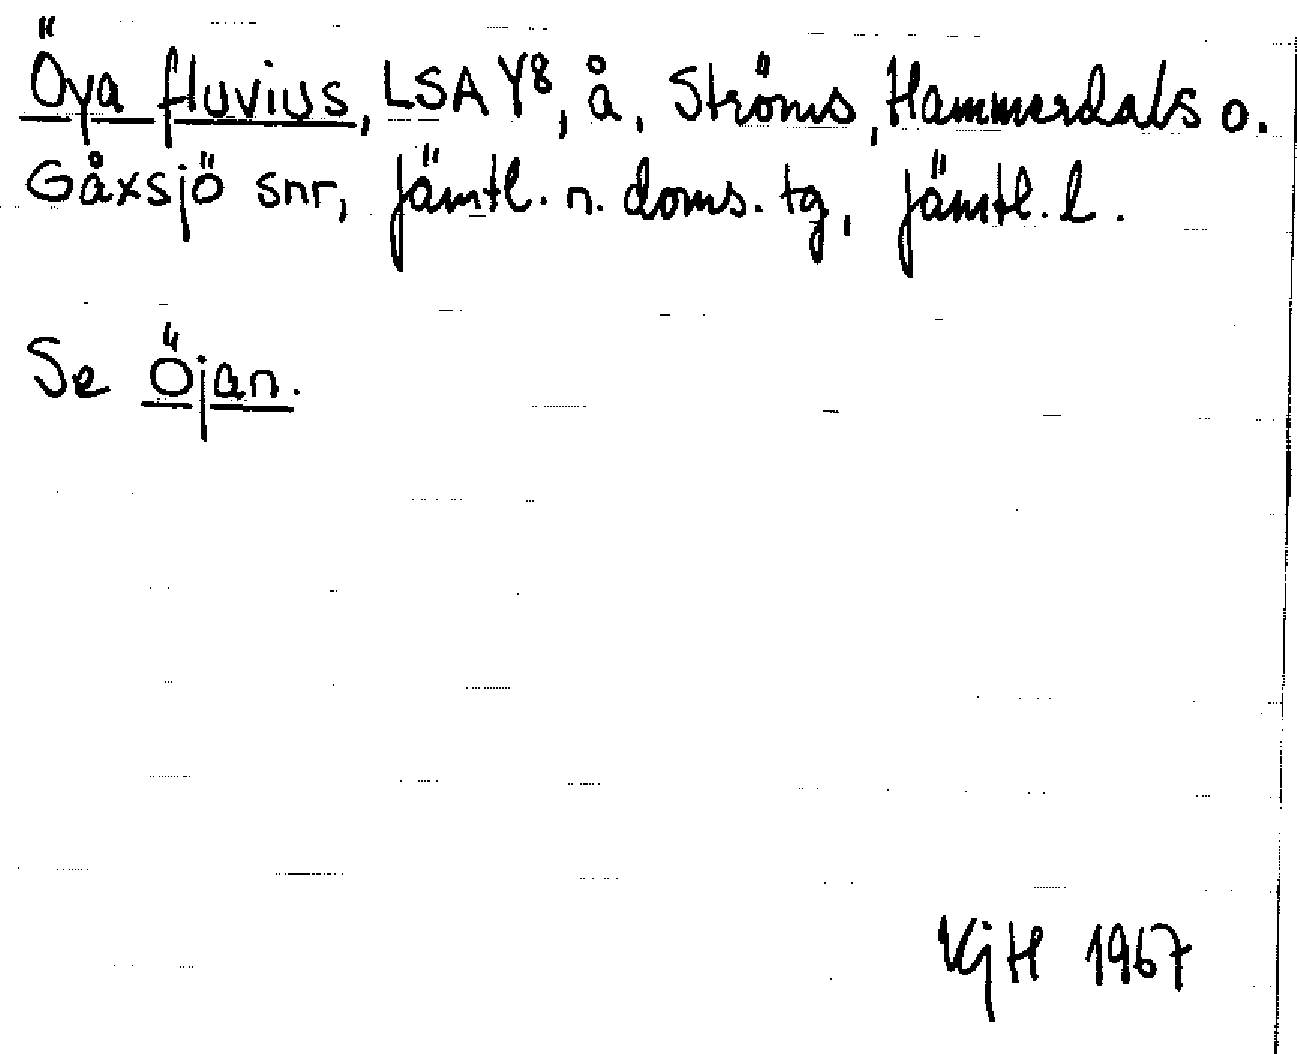 Öya fluvius, LSA Y8, å, Ströms, Hammerdals o.
Gåxsjö snr, Jämtl. n. doms. tg, Jämtl. l.
Se Öjan.
VjH 1967